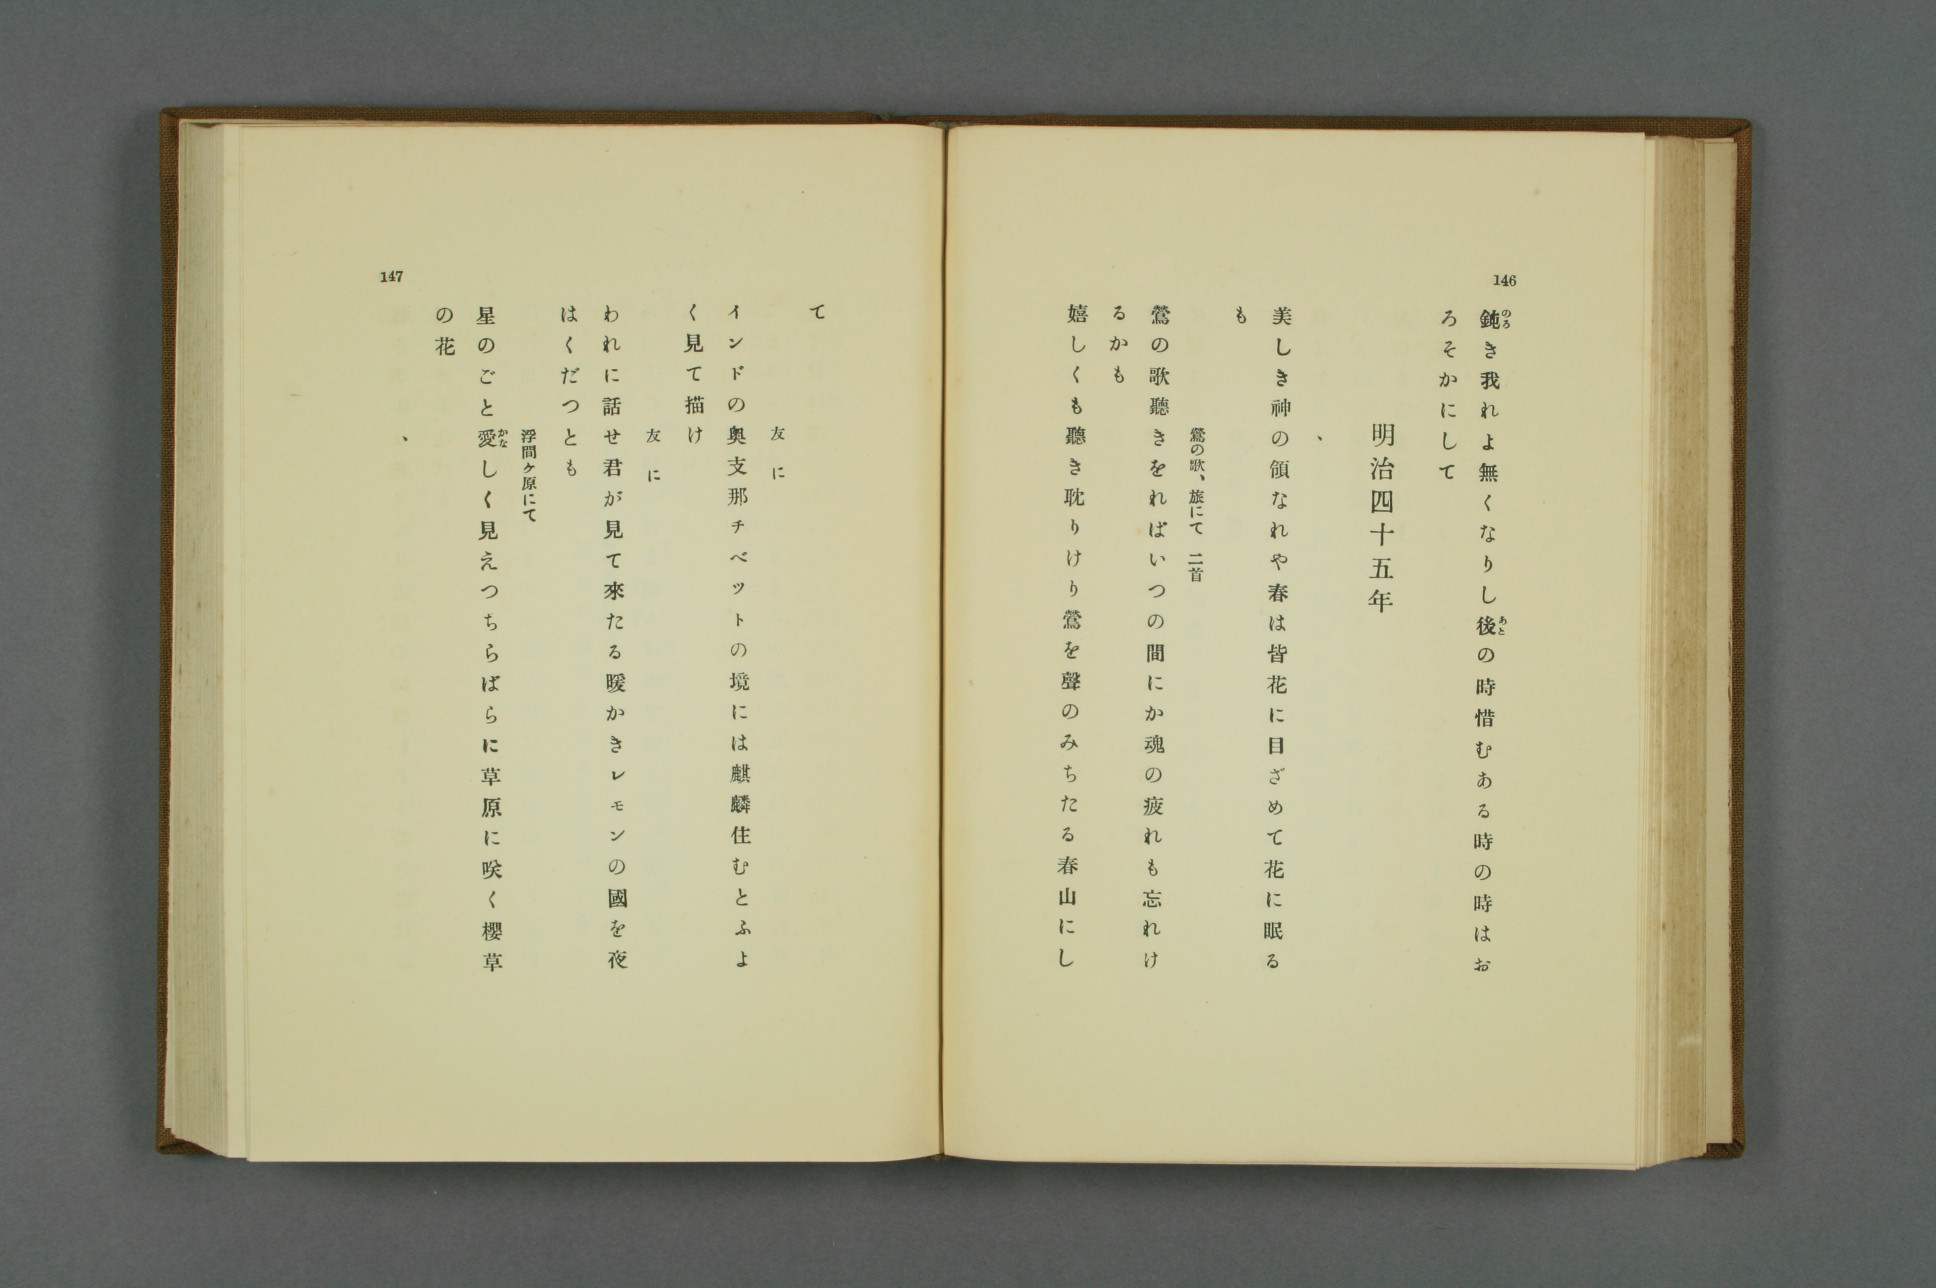 146
鈍き我れよ無くなりし後の時惜むある時の時はお
ろそかにして
明治四十五年
、
美しき神の領なれや春は皆花に目ざめて花に眠る
も
鶯の歌、旅にて 二首
鶯の歌聽きをればいつの間にか魂の疲れも忘れけ
るかも
嬉しくも聽き耽りけり鶯を聲のみちたる春山にし
147
て
友に
インドの奧支那チベットの境には麒麟住むとふよ
く見て描け
友に
われに話せ君が見て來たる暖かきレモンの國を夜
はくだつとも
浮間ヶ原にて
星のごと愛しく見えつちらばらに草原に咲く櫻草
の花
、